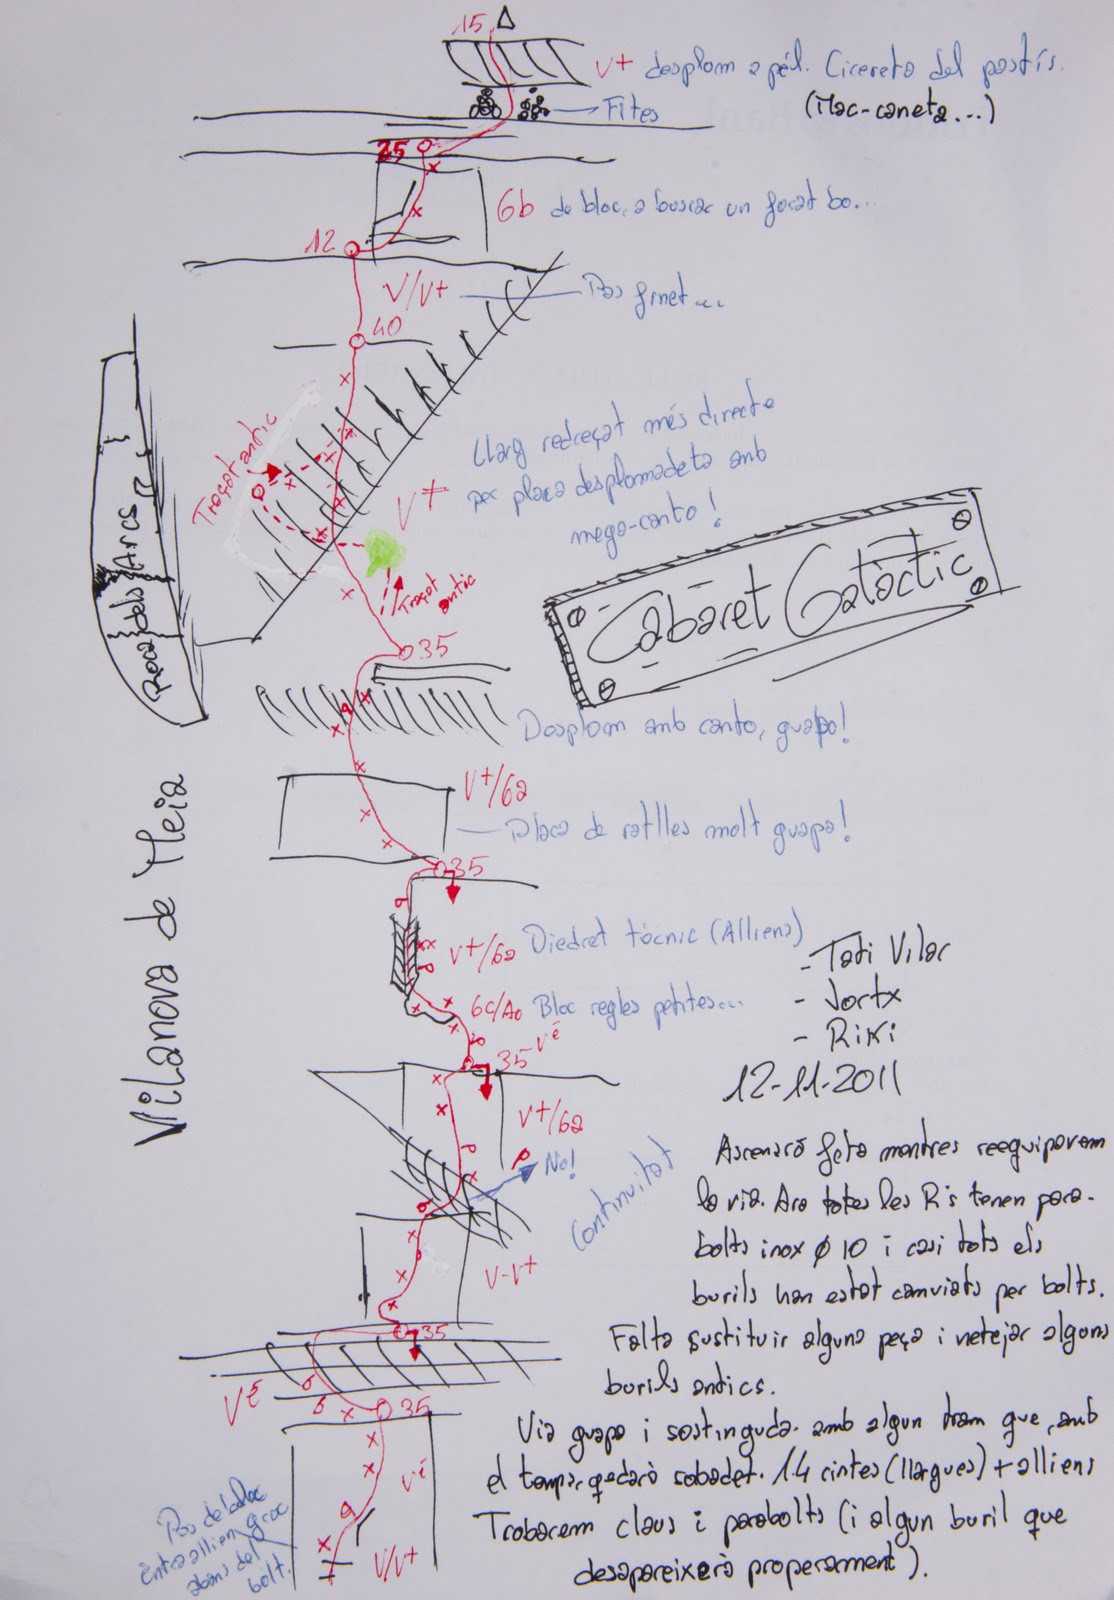 15
V+ desplom a pèl. Cirereta del pastís.
(Mac-caneta...)
Fites
25
6b de bloc, a buscar un forat bo...
12
V/V+
Pas finet...
40
Traçat antic
Llarg redreçat més directe
per placa desplomadeta amb
mega-canto!
V+
Traçat antic
Roca dels Arcs
Cabaret Galàctic
35
Desplom amb canto, guapo!
V+/6a
Placa de ratlles molt guapa!
Vilanova de Meia
35
V+/6a Diedret tècnic (Alliens)
6c/A0 Bloc regles petites...
- Tati Vilar
- Jortx
- Riki
12-11-2011
35
Vé
V+/6a
No!
Continuitat
V-V+
Ascensió feta mentres reequipavem
la via. Ara totes les R's tenen para-
bolts inox ø 10 i casi tots els
burils han estat canviats per bolts.
Falta sustituir alguna peça i netejar alguns
burils antics.
35
Vé
35
Vé
Via guapa i sostinguda. amb algun tram que, amb
el temps, quedarà sobadet. 14 cintes (llargues) + alliens
Trobarem claus i parabolts (i algun buril que
desapareixerà properament).
Pas de bloc
entra allien groc
abans del
bolt.
V/V+